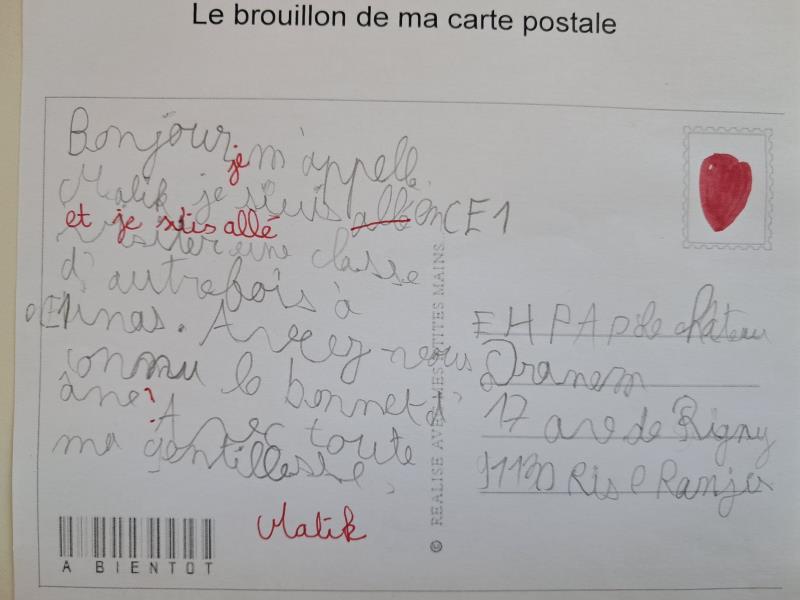 Le brouillon de ma carte postale
Bonjour, je m'appelle
Malik je suis allé en CE1
et je suis allé
visiter une classe
d'autrefois à
Avez nous
connu le bonnet d'
âne ?
Avec toute
ma gentillesse,
Malik
A BIENTOT
© REALISE AVEC MES PETITES MAINS
EHPAD le château
Dranem
17 ave de Rigny
91130 Ris Ranjis